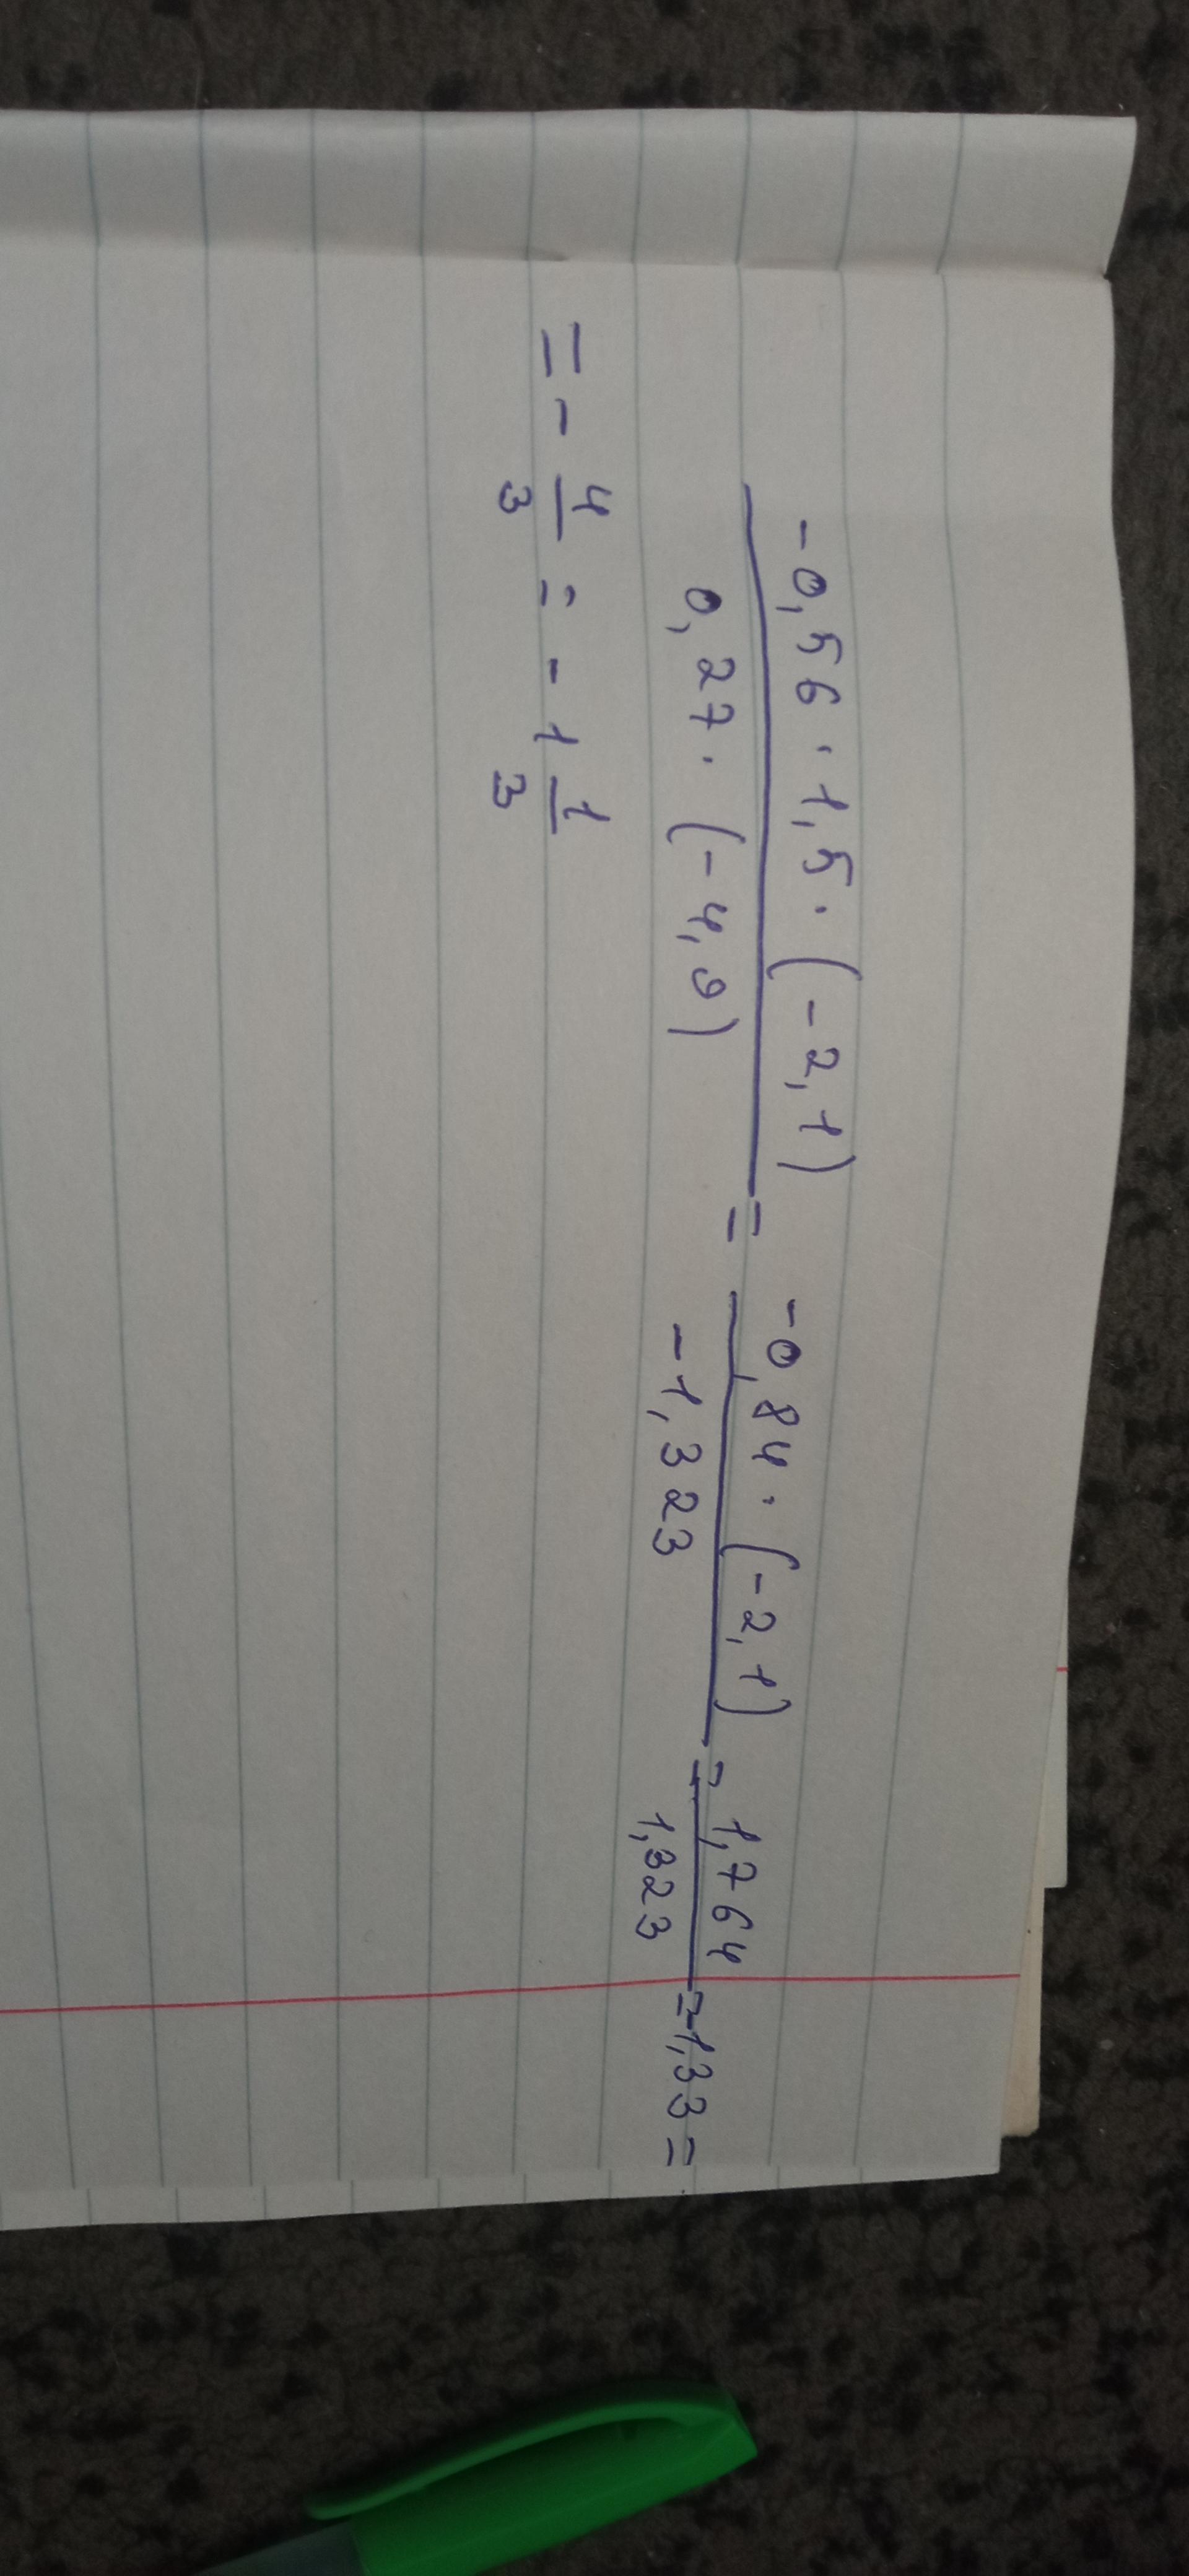 -0,56 · 1,5 · (-2,1) / 0,27 · (-4,9) = -0,84 · (-2,1) / -1,323 = - 1,764 / 1,323 = -1,33 =
= - 4/3 = - 1 1/3